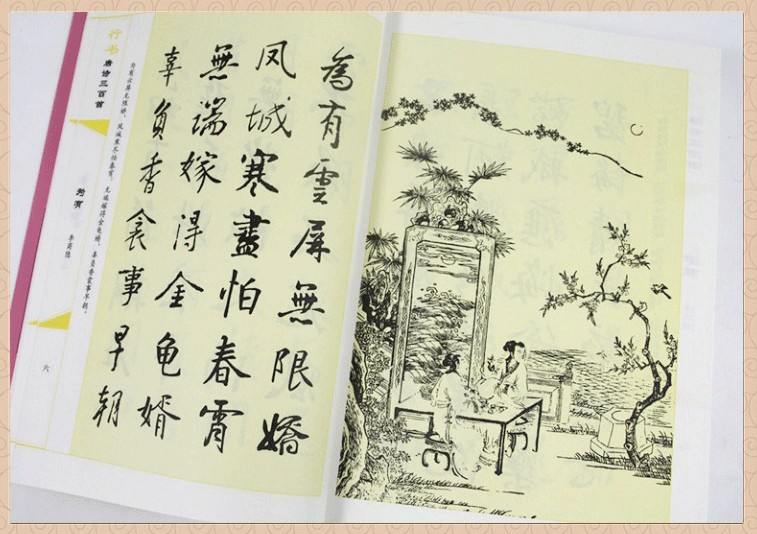 為有雲屏無限嬌
凤城寒盡怕春宵
無端嫁得金龟婿
辜負香衾事早朝
为有云屏无限娇，凤城寒尽怕春宵。无端嫁得金龟婿，辜负香衾事早朝。
行书
唐诗三百首
为有
李商隐
六